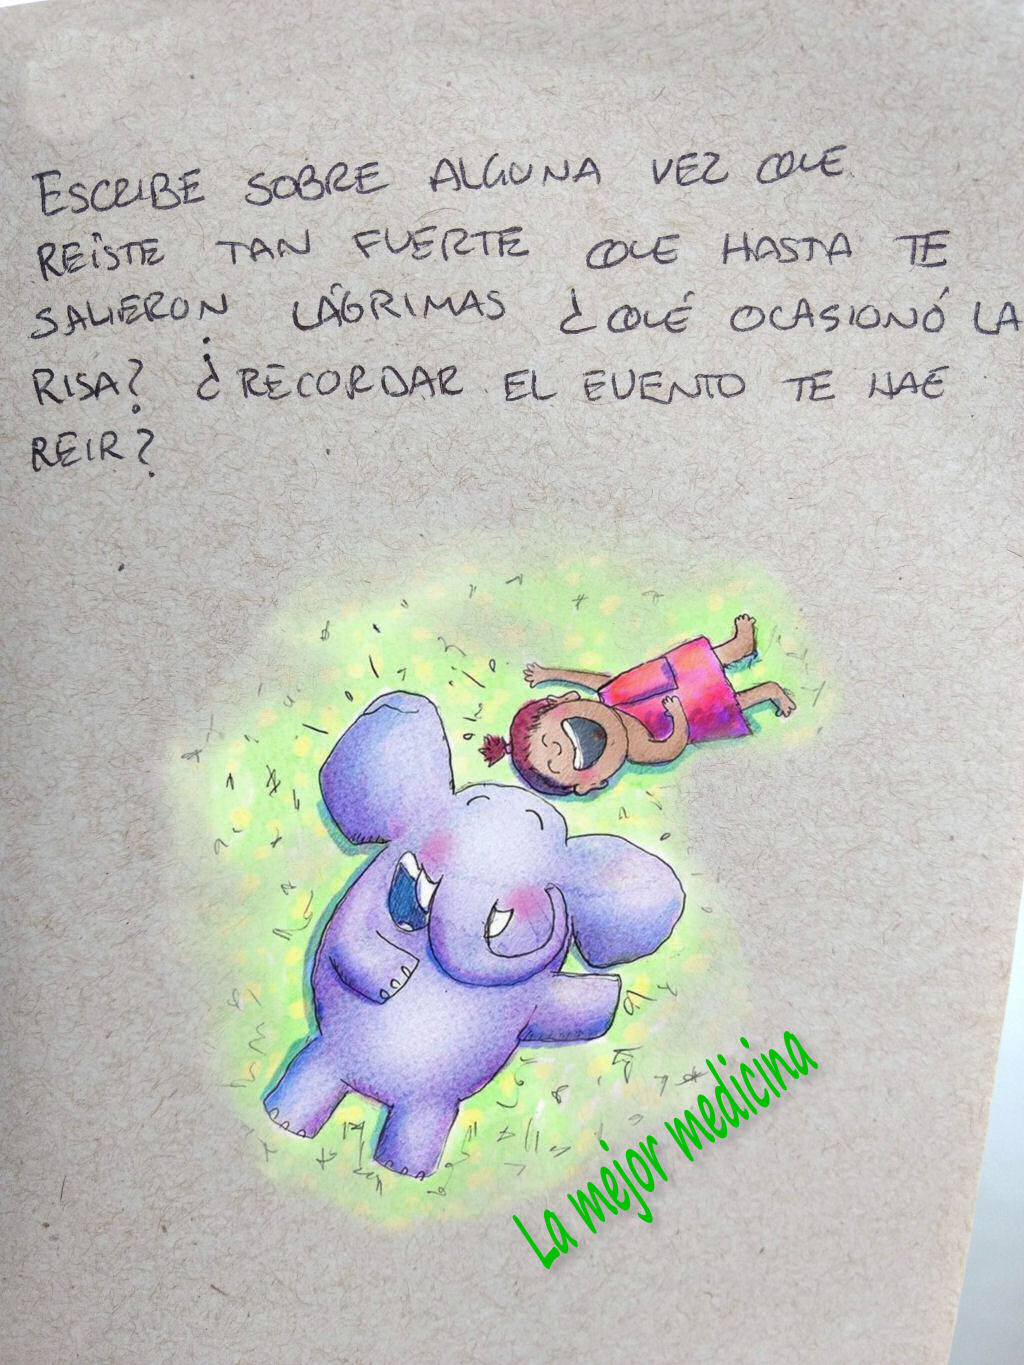 ESCRIBE SOBRE ALGUNA VEZ QUE
REÍSTE TAN FUERTE QUE HASTA TE
SALIERON LÁGRIMAS ¿QUÉ OCASIONÓ LA
RISA? ¿RECORDAR EL EVENTO TE HAE
REIR?
La mejor medicina